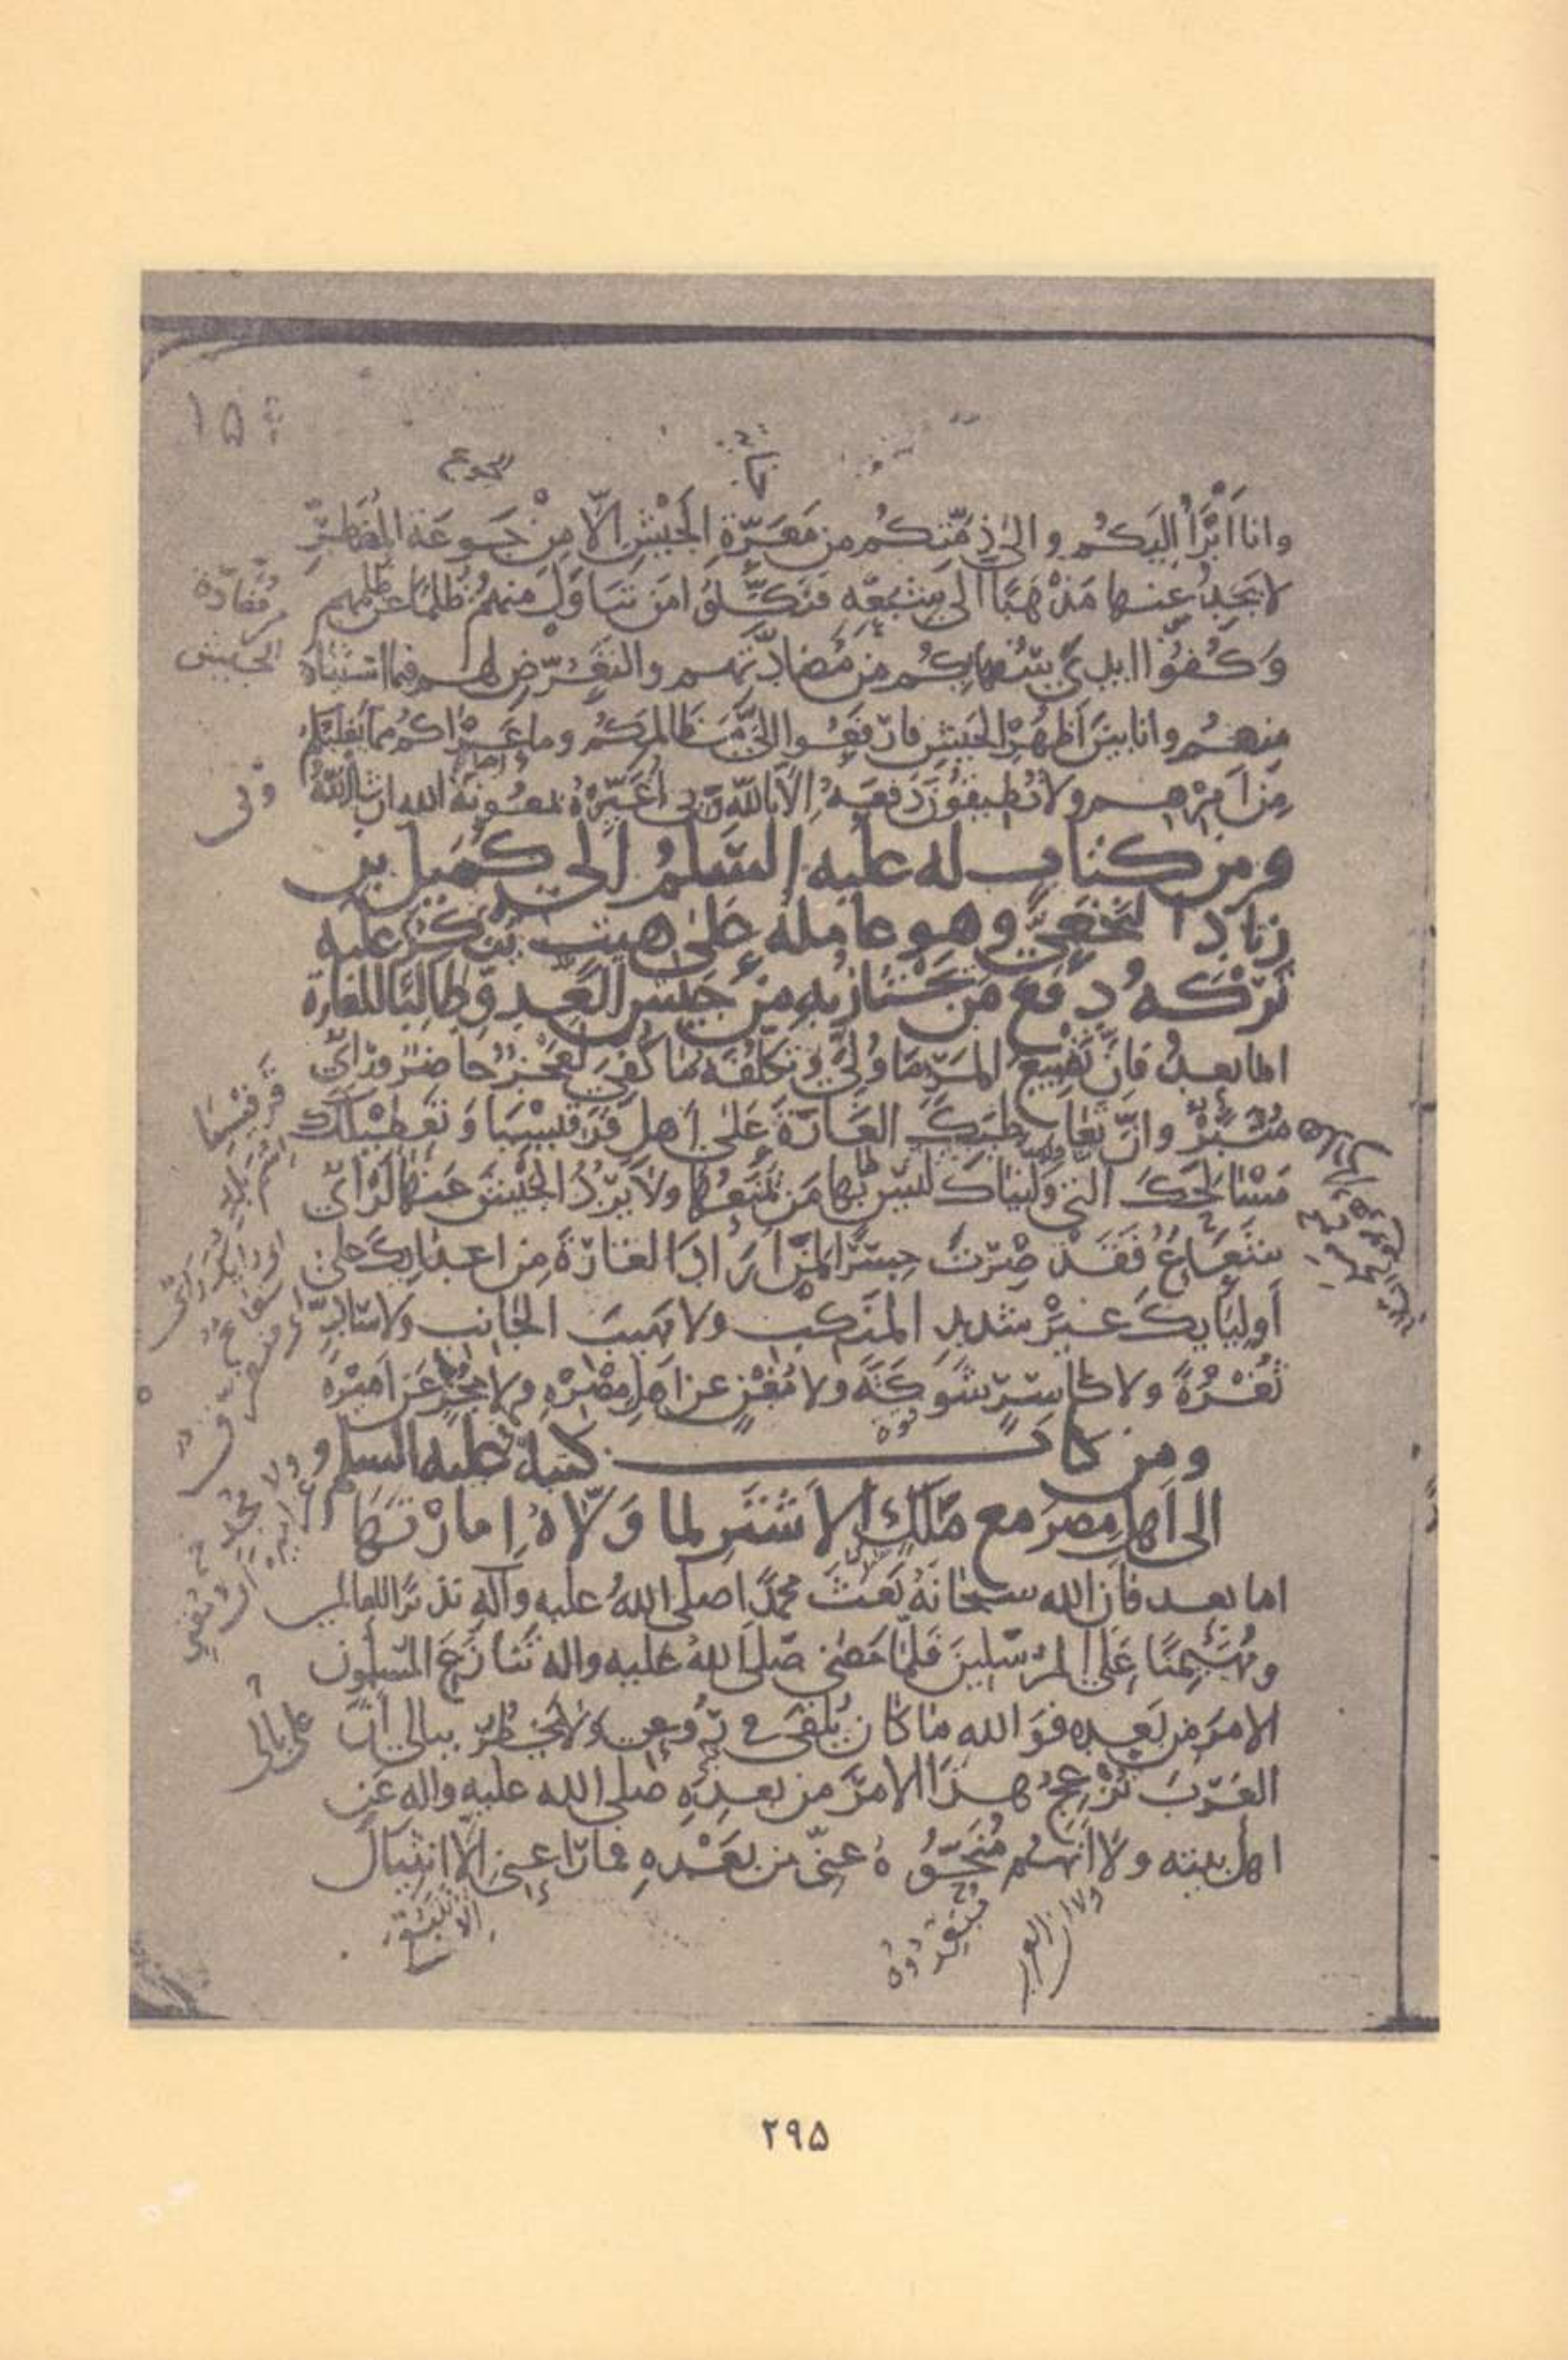 وانا أَبْرَأُ اليكم والى ذِمَّتِكُم من مَعَرَّةِ الجَيْشِ الّا مِنْ جَوعَةِ المُضْطَرِّ
لا يَجِدُ عنها مَذْهَبًا الى شِبَعِهِ فَنَكِّلوُا مَن تَنَاوَلَ منهم ظُلمًا عن ظلمهم
وَكُفوّا ايدىَ سُفهايِكُم من مُضادَّتهم والتَعَرُّضِ لهم فيما استثنيناه
منهم وانا بينَ أَظهُرِ الجَيشِ فارفَعُوا الىَّ مَظالمكم وما عَراكم مما يَغلبكم
مِن أَمرِهم ولا تُطيقُونَ دَفعَهُ الّا بالله وبى أُغَيِّرْهُ بمعُونَة الله ان شاءَ اللهُ
ومن كتابٍ له عليه السّلمُ الى كُمَيل بن
زيادٍ النخَعىِّ وهو عامله على هيت يُنكِرُ عليه
تَرْكَهُ دفع مَن يَجْتَازُ بِه مِن جَيشِ العَدوِّ طالبًا للغارة
اما بعدُ فانَّ تَضْييعَ المَرءِ ما وُلِّىَ وتكلّفَه ما كُفِىَ لَعَجْزٌ حاضرٌ ورأىٌ
مُتَبَّرٌ وانّ تعاطيَكَ الغَارَةَ عَلى أهلِ قَرقيسيا وَتَعطيلَكَ
مَسَالِحَكَ التى وَلّيناكَ ليس بها مَن يَمنَعُها ولا يَرُدُّ الجَيْشَ عَنها لَرَأىٌ
شَعَاعٌ فَقَدْ صِرْتَ جِسْرًا لِمَن أرَادَ الغَارَةَ مِن اعدايكَ على
أوليَايكَ غَيْرَ شديدِ المَنكِبِ ولا مَهيبَ الجانب ولا سادٍّ
ثُغْرَةً ولا كاسرٍ شَوكَةً ولا مُغْنٍ عن اهلِ مِصْرِهِ ولا مُجْزٍ عَن أميرِهِ
ومن كتاب كتبه عليه السلم
الى أهلِ مصرَ مع مَلكٍ الأشْتَرِ لما وَلّاهُ إمارَتَهَا
اما بعد فان الله سبحانَهُ بَعَثَ محمدًا صلى اللهُ عليه وآلِهِ نذيرًا للعالمين
ومُهَيْمِنًا عَلى المُرسَلِينَ فَلَمّا مَضى صَلَى اللهُ عليه واله تَنازَعَ المسلمون
الامرَ مِن بَعدِهِ فوَ الله ما كان يُلقَى في رُوعِى ولا يَخطُرُ ببالى أنَّ
العَرَبَ تُزْعِجُ هذا الامرَ من بعدِهِ صلى الله عليه واله عَن
اهل بيته ولا أنّهُم مُنَحّوُهُ عنّى من بَعْدِهِ فما راعنى إلّا انثِيَالُ
الجيش
وبى
قرقيسيا
اسم بلد
على بالى
۲۹۵